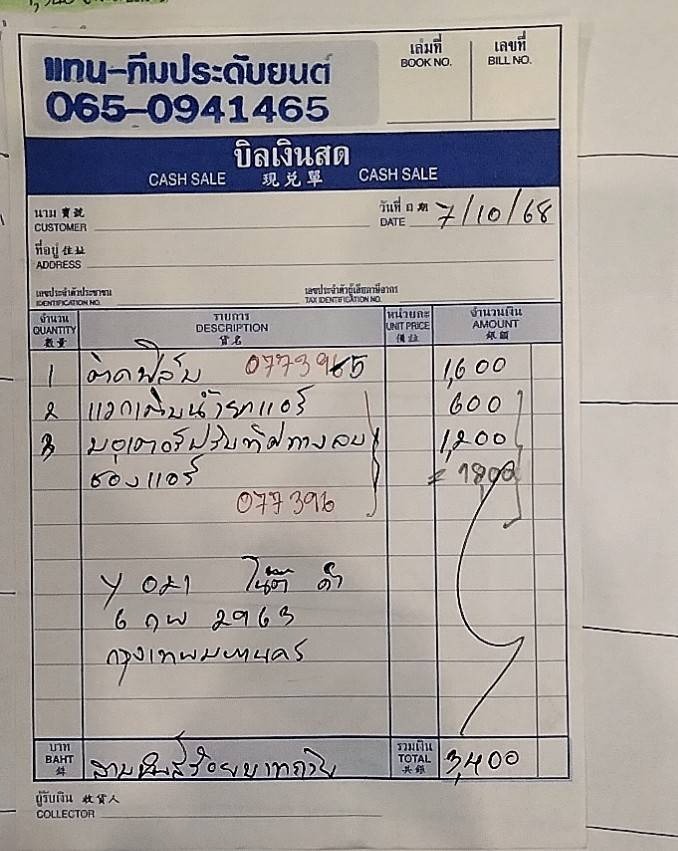 แทน-ทีมประดับยนต์
065-0941465
เล่มที่ BOOK NO.
เลขที่ BILL NO.
บิลเงินสด
CASH SALE 現兌單 CASH SALE
นาม 寶號 CUSTOMER
วันที่ 日期 DATE 7/10/68
ที่อยู่ 住址 ADDRESS
เลขประจำตัวประชาชน IDENTIFICATION NO.
เลขประจำตัวผู้เสียภาษีอากร TAX IDENTIFICATION NO.
จำนวน รายการ หน่วยละ จำนวนเงิน
QUANTITY DESCRIPTION UNIT PRICE AMOUNT
數量 貨名 價銀 銀額
1 ติดฟิล์ม 0773965 1,600
2 น้ำยาแอร์ 600
3 มอเตอร์ปรับทิศทางลม 1,200
ช่องแอร์ = 1800
077396
Y 021 ดำ
6 กพ 2963
กรุงเทพมหานคร
บาท BAHT 銖 สามพันสี่ร้อยบาทถ้วน รวมเงิน TOTAL 共銀 3,400
ผู้รับเงิน 收貨人
COLLECTOR